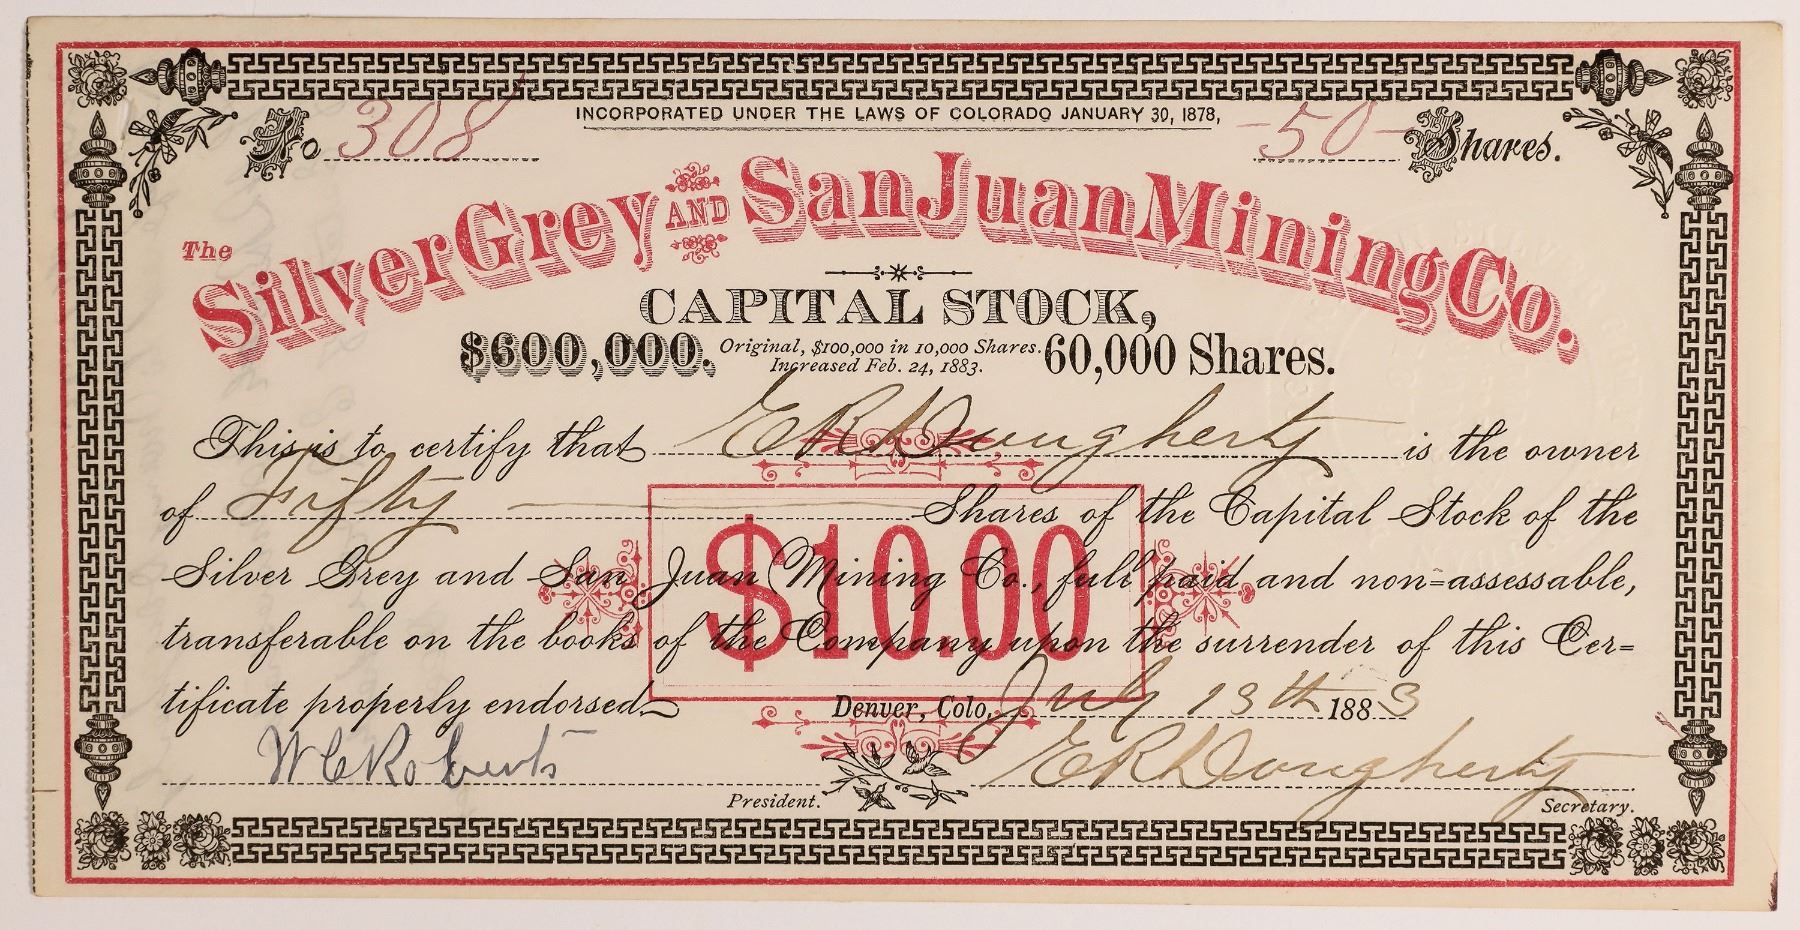 INCORPORATED UNDER THE LAWS OF COLORADO JANUARY 30, 1878,
No 308
-50- Shares.
The Silver Grey AND San Juan Mining Co.
CAPITAL STOCK,
$600,000. Original, $100,000 in 10,000 Shares. Increased Feb. 24, 1883. 60,000 Shares.
This is to certify that E R Dougherty is the owner
of Fifty Shares of the Capital Stock of the
Silver Grey and San Juan Mining Co., full paid and non=assessable,
transferable on the books of the Company upon the surrender of this Cer=
tificate properly endorsed
$10.00
Denver, Colo, July 13th 1883
W C Roberts President.
E R Dougherty Secretary.